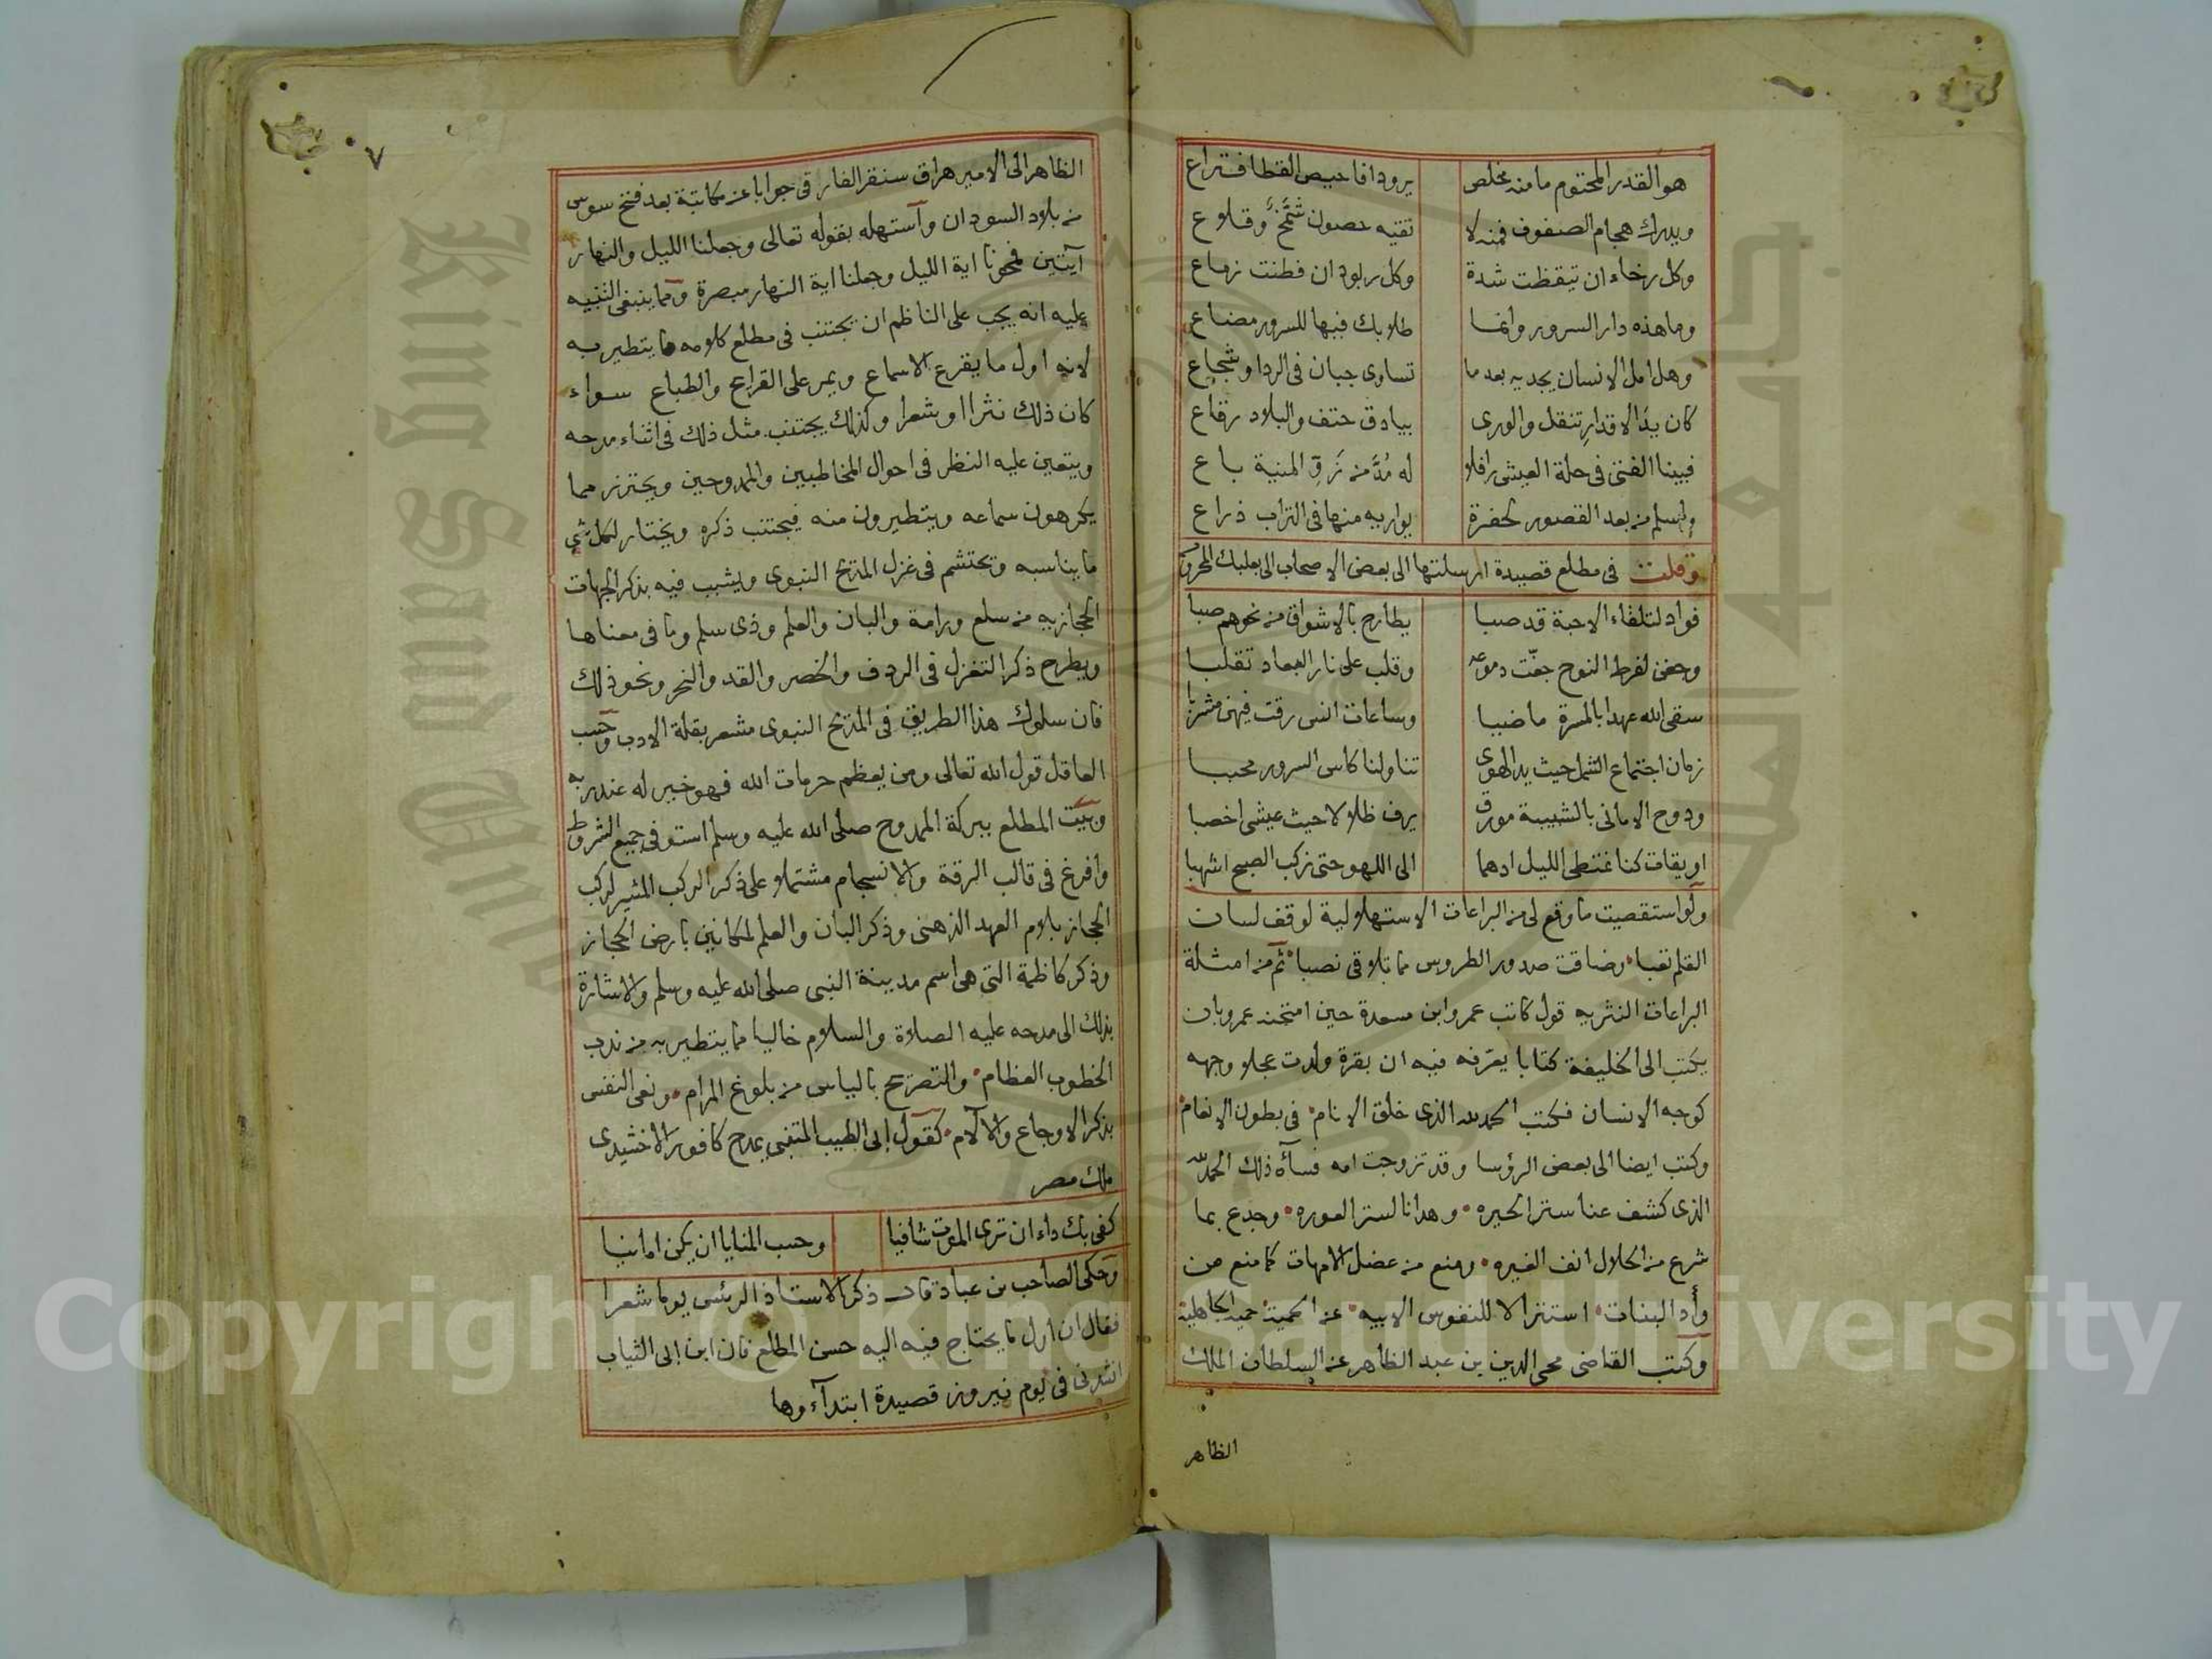 هو القدر المحتوم ما منه مخلص يرود افاحيص القطا فتراع
ويدرك هجام الصفوف فمنه لا تقيه حصون شمخ وقلاع
وكل رخاء ان تيقظت شدة وكل ربود ان فطنت زماع
وما هذه دار السرور وانما طلابك فيها للسرور مضاع
وهل امل الانسان يجديه بعد ما تساوى جبان في الردا وشجاع
كان يد الاقدار تنقل والورى بيادق حتف والبلاد رقاع
فبينا الفتى في حلة العيش رافلا له مُدَّ من زرق المنية باع
واسلم من بعد القصور لحفرة يواريه منها في التراب ذراع
وقلت في مطلع قصيدة ارسلتها الى بعض الاصحاب الى بعلبك المحروسة
فواد لتلقاء الاحبة قد صبا يطارح بالاشواق من نحوهم صبا
وجفن لفرط النوح جفّت دموعه وقلب على نار البعاد تقلبا
سقى الله عهدا بالمسرة ماضيا وساعات انس رقت فيهن مشربا
زمان اجتماع الشمل حيث يد الهوى تناولنا كاس السرور محببا
ودوح الاماني بالشبيبة مورق يرف ظلالا حيث عيشى اخصبا
اويقات كنا نمتطى الليل ادهما الى اللهو حتى نركب الصبح اشهبا
ولو استقصيت ما وقع لى من البراعات الاستهلالية لوقف لسان
القلم تعبا وضاقت صدور الطروس مما تلاقى نصبا ثم من امثلة
البراعات النثريه قول كاتب عمرو ابن مسعدة حين امتحنه عمرو بان
يكتب الى الخليفة كتابا يعرّفه فيه ان بقرة ولدت عجلا وجهه
كوجه الانسان فكتب الحمد لله الذى خلق الانام في بطون الانعام
وكتب ايضا الى بعض الرؤسا وقد تزوجت امه فسآه ذلك الحمد لله
الذى كشف عنا ستر الحيره وهدانا لستر العوره وجدع بما
شرع من الحلال انف الغيره ومنع من عضل الامهات كما منع من
وأد البنات استنزالا للنفوس الابيه عن الحمية حمية الجاهلية
وكتب القاضى محي الدين بن عبد الظاهر عن السلطان الملك
الظاهر
٧
الظاهر الى الامير هراق سنقر الفارقى جوابا عن مكاتبة بعد فتح سوس
من بلاد السودان وآستهله بقوله تعالى وجعلنا الليل والنهار
آيتين فمحونا اية الليل وجعلنا اية النهار مبصرة ومما ينبغى التنبيه
عليه انه يجب على الناظم ان يجتنب في مطلع كلامه ما يتطير به
لانه اول ما يقرع الاسماع ويمر على القرايح والطباع سواء
كان ذلك نثرا او شعرا وكذلك يجتنب مثل ذلك في اثناء مدحه
ويتعين عليه النظر في احوال المخاطبين والممدوحين ويحترز مما
يكرهون سماعه ويتطيرون منه فيجتنب ذكره ويختار لكل شي
ما يناسبه ويحتشم في غزل المديح النبوى ويشبب فيه بذكر الجهات
الحجازيه من سلع ورامة والبان والعلم وذى سلم وما في معناها
ويطرح ذكر التغزل في الردف والخصر والقد والنحر ونحو ذلك
فان سلوك هذا الطريق في المديح النبوى مشعر بقلة الادب وحسب
العاقل قول الله تعالى ومن يعظم حرمات الله فهو خير له عند ربه
وبيت المطلع ببركة الممدوح صلى الله عليه وسلم استوفى جميع الشروط
وافرغ في قالب الرقة والانسجام مشتملا على ذكر الركب المشير لركب
الحجاز بلام العهد الذهنى وذكر البان والعلم لمكانين بارض الحجاز
وذكر كاظمة التى هى اسم مدينة النبى صلى الله عليه وسلم والاشارة
بذلك الى مدحه عليه الصلاة والسلام خاليا مما يتطير به من ندب
الخطوب العظام والتصريح بالياس من بلوغ المرام ونعى النفس
بذكر الاوجاع والآلام كقول ابى الطيب المتنبى يمدح كافور الاخشيدى
ملك مصر
كفى بك داء ان ترى الموت شافيا وحسب المنايا ان يكن امانيا
وحكى الصاحب بن عباد قال ذكر الاستاذ الرئس يوما شعرا
فقال ان اول ما يحتاج فيه اليه حسن المطلع فان ابن ابى الثياب
انشدنى في يوم نيروز قصيدة ابتدآءوها
King Saud University
Copyright © King Saud University